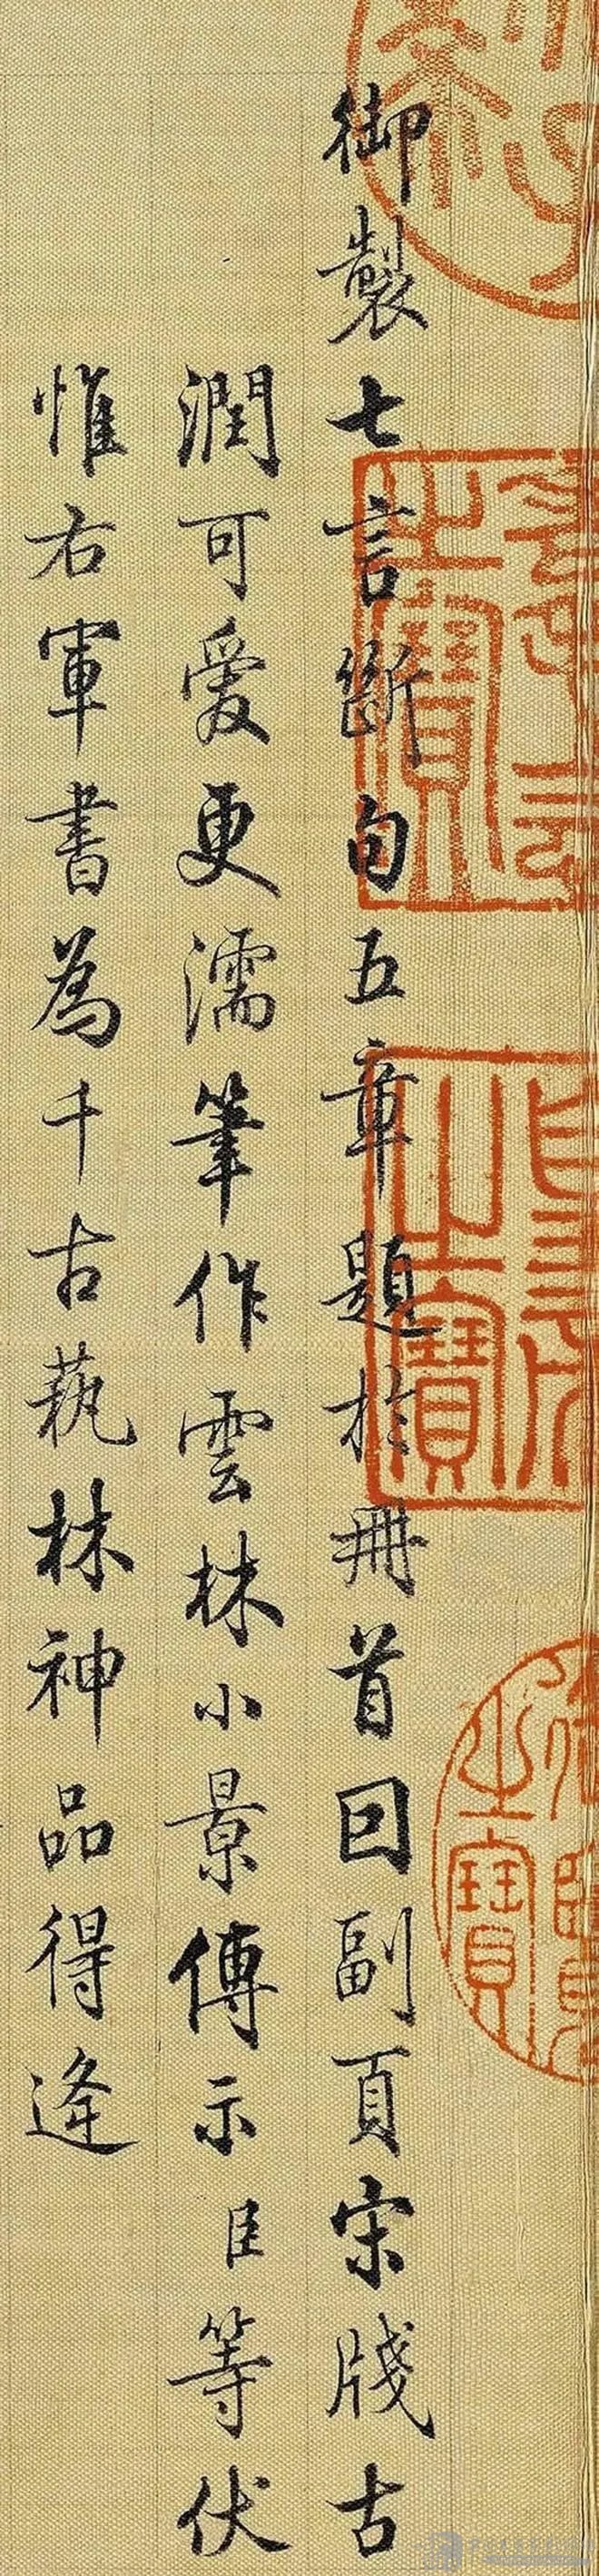 御製七言斷句五章題於冊首曰副頁宋牋古
潤可愛更濡筆作雲林小景傳示臣等伏
惟右軍書為千古蓺林神品得逢
之寶
之寶
之寶